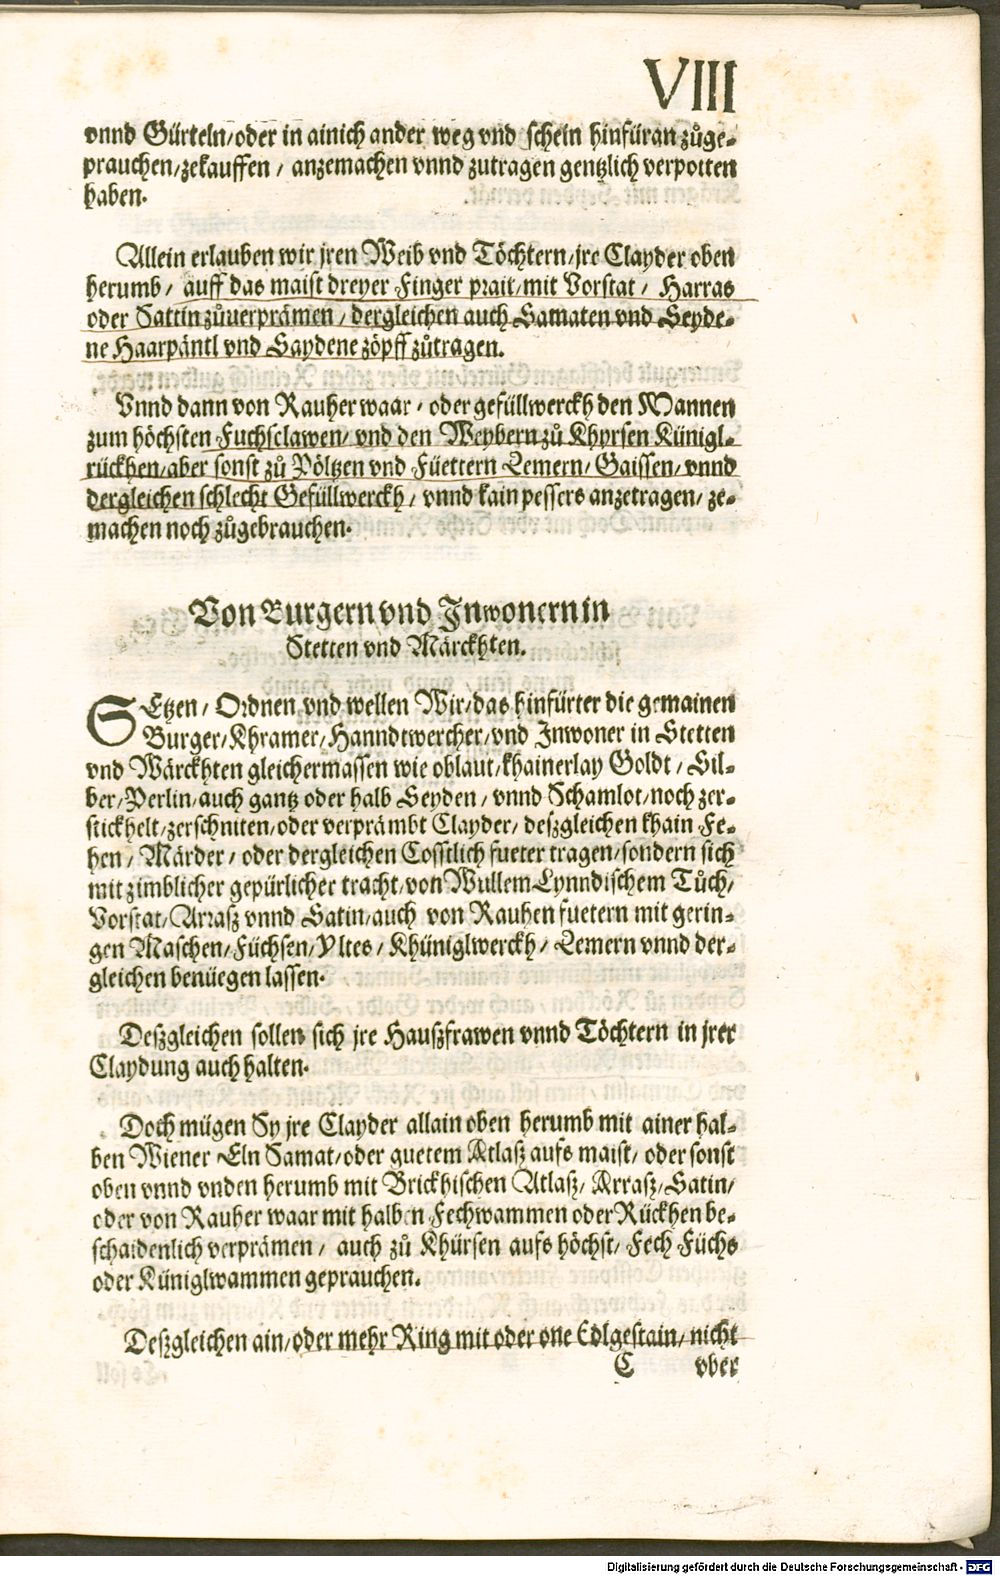 VIII
vnnd Gürteln/oder in ainich ander weg vnd schein hinfüran zůge-
prauchen/zekauffen / anzemachen vnnd zutragen gentzlich verpotten
haben.
Allein erlauben wir jren Weib vnd Töchtern/jre Clayder oben
herumb / auff das maist dreyer Finger prait/mit Vorstat / Harras
oder Sattin zůuerprämen / dergleichen auch Samaten vnd Seyde-
ne Haarpäntl vnd Saydene zöpff zůtragen.
Vnnd dann von Rauher waar / oder gefüllwerckh den Mannen
zum höchsten Fuchsclawen/ vnd den Weybern zů Khyrsen Künigl-
rückhen/aber sonst zů Pöltzen vnd Füettern Lemern/ Gaissen/ vnnd
dergleichen schlecht Gefüllwerckh / vnnd kain pessers anzetragen/ ze-
machen noch zůgebrauchen.
Von Burgern vnd Jnwonern in
Stetten vnd Märckhten.
SEtzen / Ordnen vnd wellen Wir/das hinfürter die gemainen
Burger/Khramer/Hanndtwercher/vnd Jnwoner in Stetten
vnd Märckhten gleichermassen wie oblaut/khainerlay Goldt / Sil-
ber/Perlin/auch gantz oder halb Seyden / vnnd Schamlot/noch zer-
stickhelt/zerschniten/oder verprämbt Clayder/ deszgleichen khain Fe-
hen / Märder / oder dergleichen Cosstlich fueter tragen/sondern sich
mit zimblicher gepürlicher tracht/von Wullem Lynndischem Tůch/
Vorstat/Arrasz vnnd Satin/auch von Rauhen fuetern mit gerin-
gen Maschen/Füchsen/Yltes / Khüniglwerckh / Lemern vnnd der-
gleichen benüegen lassen.
Deszgleichen sollen sich jre Hauszfrawen vnnd Töchtern in jrer
Claydung auch halten.
Doch mügen Sy jre Clayder allain oben herumb mit ainer hal-
ben Wiener Eln Samat/oder guetem Atlasz aufs maist/ oder sonst
oben vnnd vnden herumb mit Brickhischen Atlasz/ Arrasz/Satin/
oder von Rauher waar mit halben Fechwammen oder Rückhen be-
schaidenlich verprämen / auch zů Khürsen aufs höchst/ Fech Füchs
oder Küniglwammen geprauchen.
Deszgleichen ain/oder mehr Ring mit oder one Edlgestain/ nicht
C vber
Digitalisierung gefördert durch die Deutsche Forschungsgemeinschaft - DFG